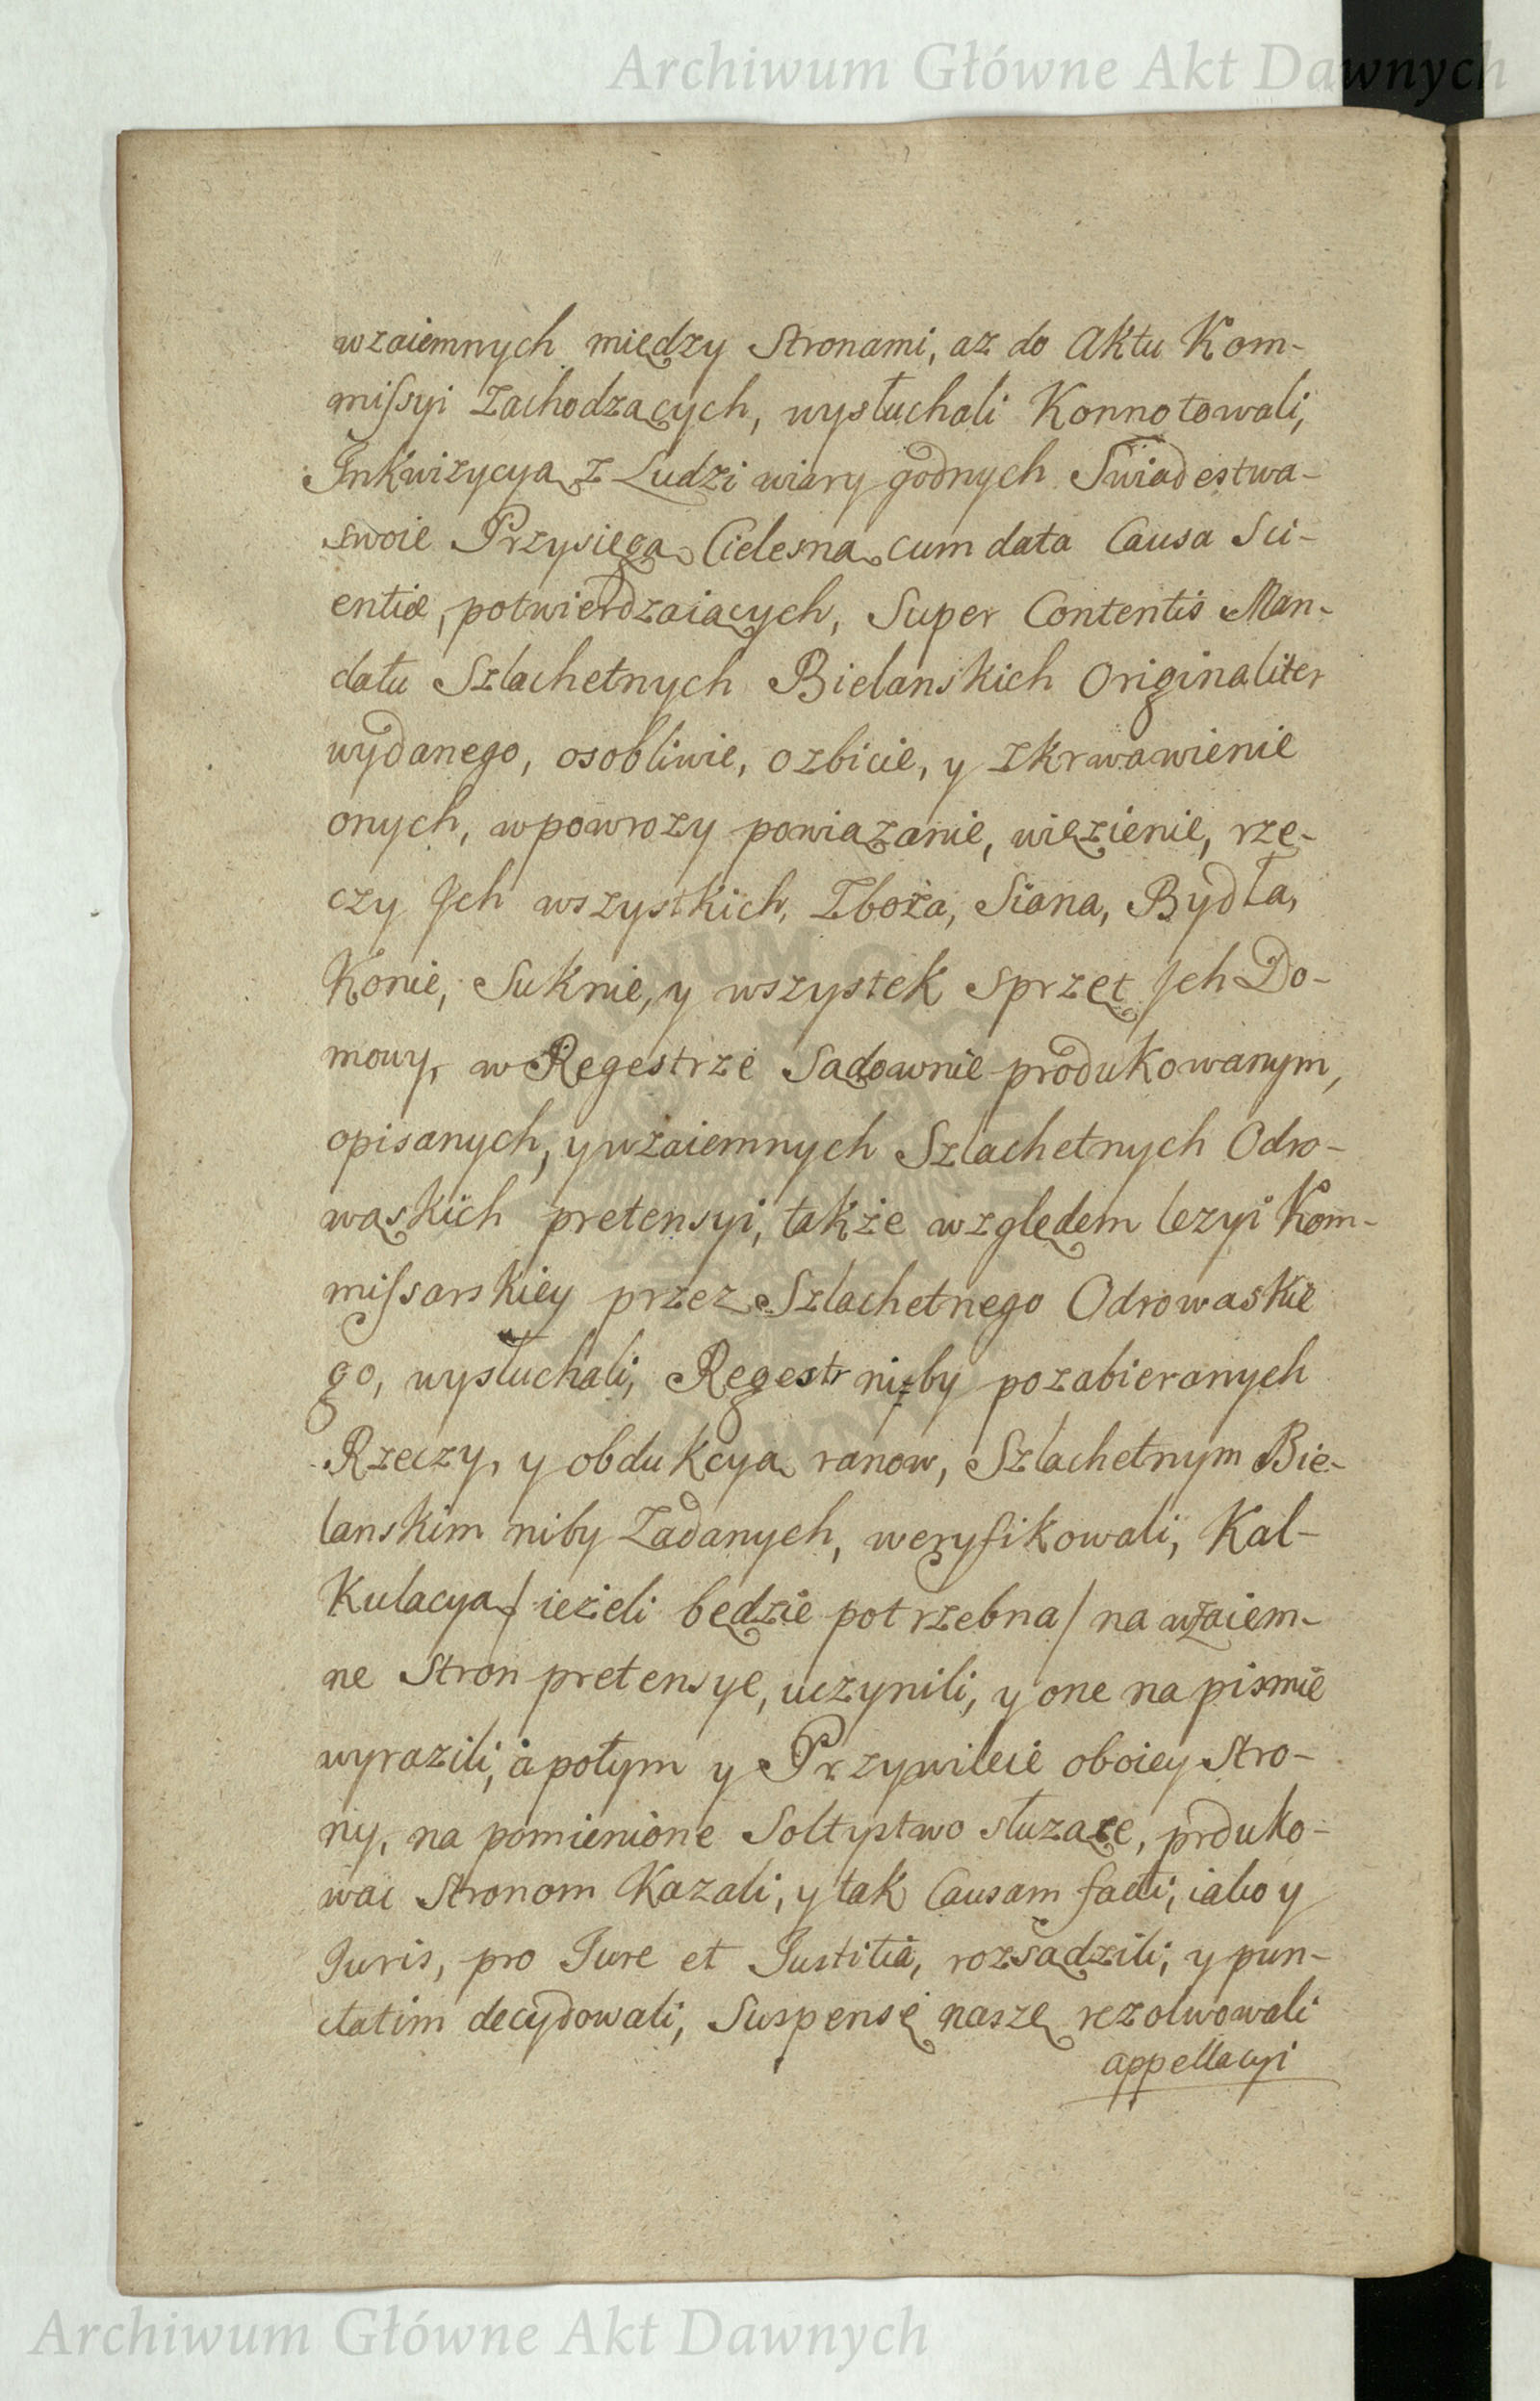 Archiwum Główne Akt Dawnych
wzaiemnych między Stronami, az do Aktu Kom-
missyi Zachodzących, wysłuchali Konnotowali,
Inkwizycyą z Ludzi wiary godnych Swiadestwa-
swoie Przysięgą Cielesną cum data Causa Sci-
entiæ, potwierdzaiących, Super Contentis Man-
datu Szlachetnych Bielanskich Originaliter
wydanego, osobliwie, o zbicie, y zkrwawienie
onych, w powrozy powiązanie, więzienie, rze-
czy Jch wszystkich, Zboża, Siana, Bydła,
Konie, Suknie, y wszystek Sprzęt Jch Do-
mowy, w Regestrze Sądownie produkowanym,
opisanych, y wzaiemnych Szlachetnych Odro-
wąskich pretensyi, także względem lezyi Kom-
missarskiey przez Szlachetnego Odrowaskie
go, wysłuchali, Regestr niby pozabieranych
Rzeczy, y obdukcyą ranow, Szlachetnym Bie-
lanskim niby Zadanych, weryfikowali, Kal-
Kulacyą / ieżeli będzie potrzebna / na wzaiem-
ne Stron pretensye, uczynili, y one na pismie
wyrazili, a potym y Przywileie oboiey Stro-
ny, na pomienione Sołtystwo służące, prduko-
wac Stronom Kazali, y tak Causam facti, iako y
Juris, pro Jure et Justitia, rozsądzili, y pun-
ctatim decydowali, Suspensę naszę rezolwowali
appellacyi
Archiwum Główne Akt Dawnych